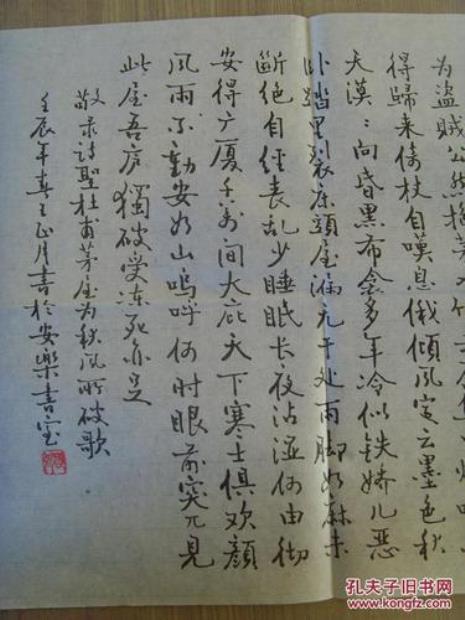 为盗贼公然抱茅入竹去
得歸来倚杖自嘆息俄傾風定云墨色秋
天漠：向昏黑布衾多年冷似铁嬌儿恶
卧踏里裂床頭屋漏无干处雨脚如麻未
斷绝自经丧乱少睡眠长夜沾湿何由彻
安得广厦千万间大庇天下寒士俱欢颜
风雨不動安如山嗚呼何时眼前突兀見
此屋吾庐獨破受冻死亦足
敬录诗聖杜甫茅屋为秋風所破歌
壬辰年春王正月書於安樂書室
孔夫子旧书网